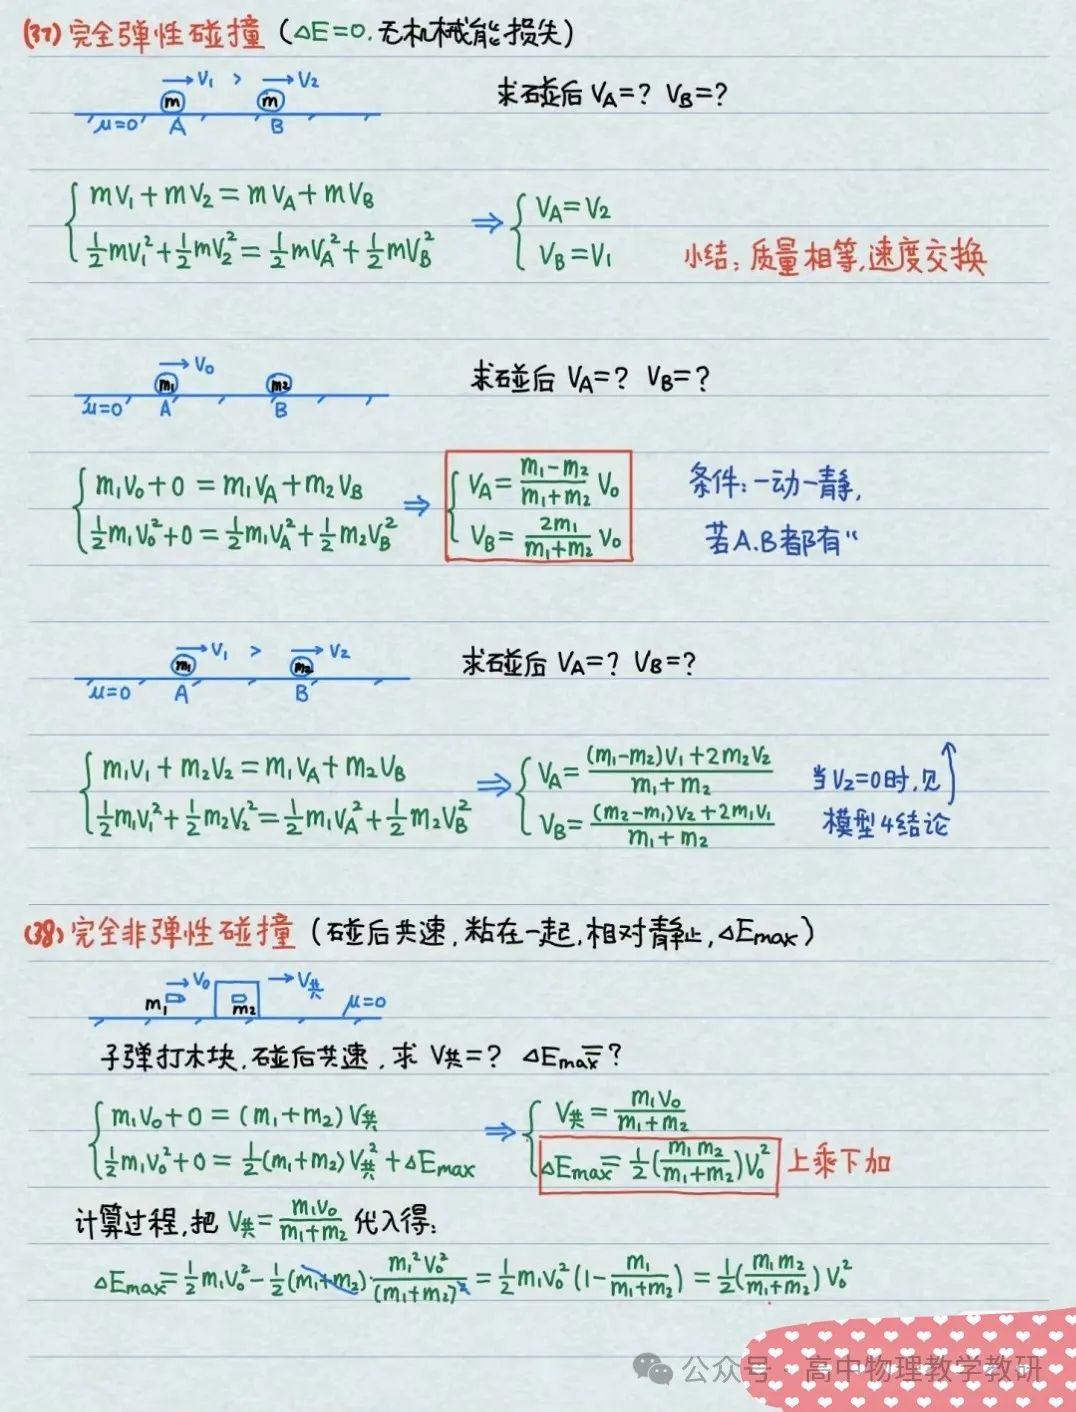 (37) 完全弹性碰撞 (△E=0.无机械能损失)
→V₁ > →V₂
m m 求碰后 VA=? VB=?
μ=0 A B
{ mV₁+mV₂=mVA+mVB
½mV₁²+½mV₂²=½mVA²+½mVB²
⇒ { VA=V₂
VB=V₁
小结:质量相等,速度交换
→V₀
m₁ m₂ 求碰后 VA=? VB=?
μ=0 A B
{ m₁V₀+0=m₁VA+m₂VB
½m₁V₀²+0=½m₁VA²+½m₂VB²
⇒ { VA=\frac{m₁-m₂}{m₁+m₂}V₀
VB=\frac{2m₁}{m₁+m₂}V₀
条件:一动一静,
若A.B都有“
→V₁ > →V₂
m₁ m₂ 求碰后 VA=? VB=?
μ=0 A B
{ m₁V₁+m₂V₂=m₁VA+m₂VB
½m₁V₁²+½m₂V₂²=½m₁VA²+½m₂VB²
⇒ { VA=\frac{(m₁-m₂)V₁+2m₂V₂}{m₁+m₂}
VB=\frac{(m₂-m₁)V₂+2m₁V₁}{m₁+m₂}
当V₂=0时,见
模型4结论
(38) 完全非弹性碰撞 (碰后共速,粘在一起,相对静止,△Emax)
→V₀ →V共
m₁ m₂ μ=0
子弹打木块,碰后共速,求 V共=? △Emax=?
{ m₁V₀+0=(m₁+m₂)V共
½m₁V₀²+0=½(m₁+m₂)V共²+△Emax
⇒ { V共=\frac{m₁V₀}{m₁+m₂}
△Emax=½(\frac{m₁m₂}{m₁+m₂})V₀² 上乘下加
计算过程,把 V共=\frac{m₁V₀}{m₁+m₂} 代入得:
△Emax=½m₁V₀²-½(m₁+m₂)·\frac{m₁²V₀²}{(m₁+m₂)²}=½m₁V₀²(1-\frac{m₁}{m₁+m₂})=½(\frac{m₁m₂}{m₁+m₂})V₀²
公众号 高中物理教学教研